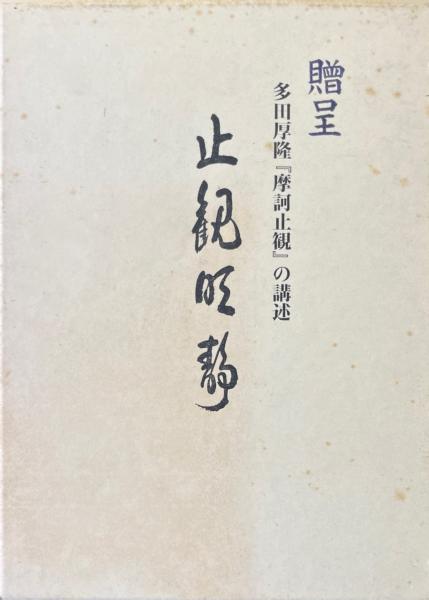 贈呈
多田厚隆『摩訶止観』の講述
止観明静